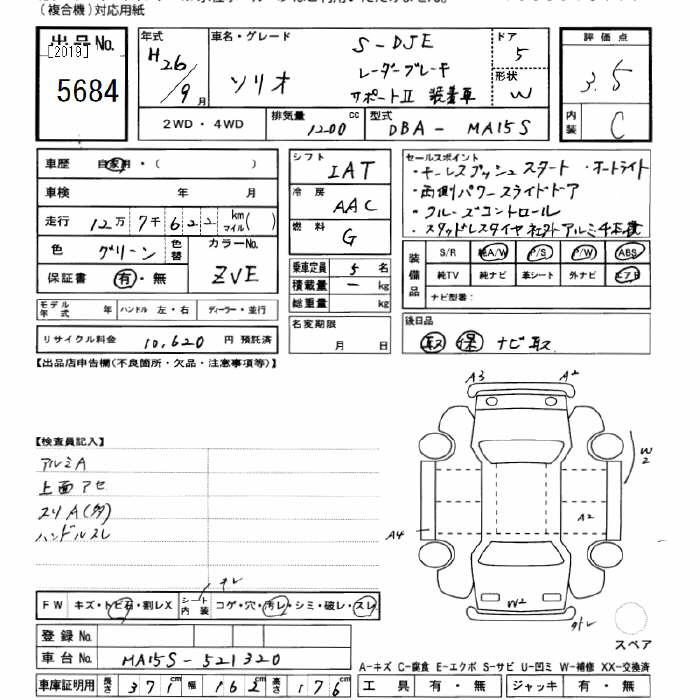 (複合機)対応用紙
出品No.
[2019]
5684
年式
H26/9月
車名・グレード
S-DJE
ソリオ
レーダーブレーキ
サポートII 装着車
ドア
5
形状
W
評価点
3.5
内装
C
2WD・4WD
排気量
1200cc
型式
DBA-MA15S
車歴 自家用・( )
車検 年 月
走行 12万7千622 km マイル( )
色 グリーン 色替
カラーNo.
ZVE
保証書 有・無
モデル年式 年 ハンドル 左・右 ディーラー・並行
リサイクル料金 10,620円 預託済
シフト IAT
冷房 AAC
燃料 G
乗車定員 5名
積載量 ー kg
総重量 kg
名変期限
月 日
セールスポイント
・キーレスプッシュスタート ・オートライト
・両側パワースライドドア
・クルーズコントロール
・スタッドレスタイヤ社外アルミ
装備品
S/R 純A/W P/S P/W ABS
純TV 純ナビ 革シート 外ナビ エアB
ナビ型番:
後日品
取 保 ナビ取
【出品店申告欄(不良箇所・欠品・注意事項等)】
【検査員記入】
アルミA
上面アセ
スリA(多)
ハンドルスレ
A3
A2
W2
A4
A2
W2
スペア
FW キズ・トビ石・割レX シート内装 コゲ・穴・汚レ・シミ・破レ・スレ
登録No.
車台No. MA15S-521320
車庫証明用 長さ 371 幅 162 高さ 176
A-キズ C-腐食 E-エクボ S-サビ U-凹ミ W-補修 XX-交換済
工具 有・無 ジャッキ 有・無